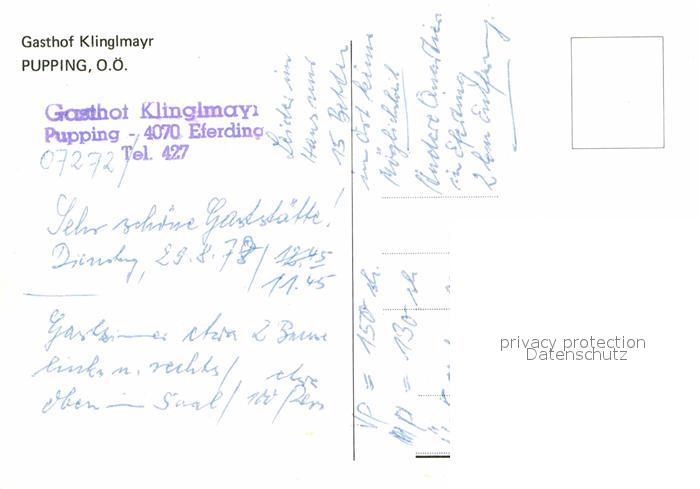 Gasthof Klinglmayr
PUPPING, O.Ö.
Gasthof Klinglmayr
Pupping - 4070 Eferding
Tel. 427
07272/
Sehr schöne Gaststätte!
Dienstag, 29.8.78 / 12.45
11.45
Gastzimmer etwa 2 Räume
links u. rechts/ etwa
oben im Saal/ 100 Pers
Leider im
Haus nur
15 Betten
im Ort keine
Möglichkeit
Andere Quartiere
in Eferding
2 km Entferng.
VP = 150 sh.
HP = 130 sh
privacy protection
Datenschutz